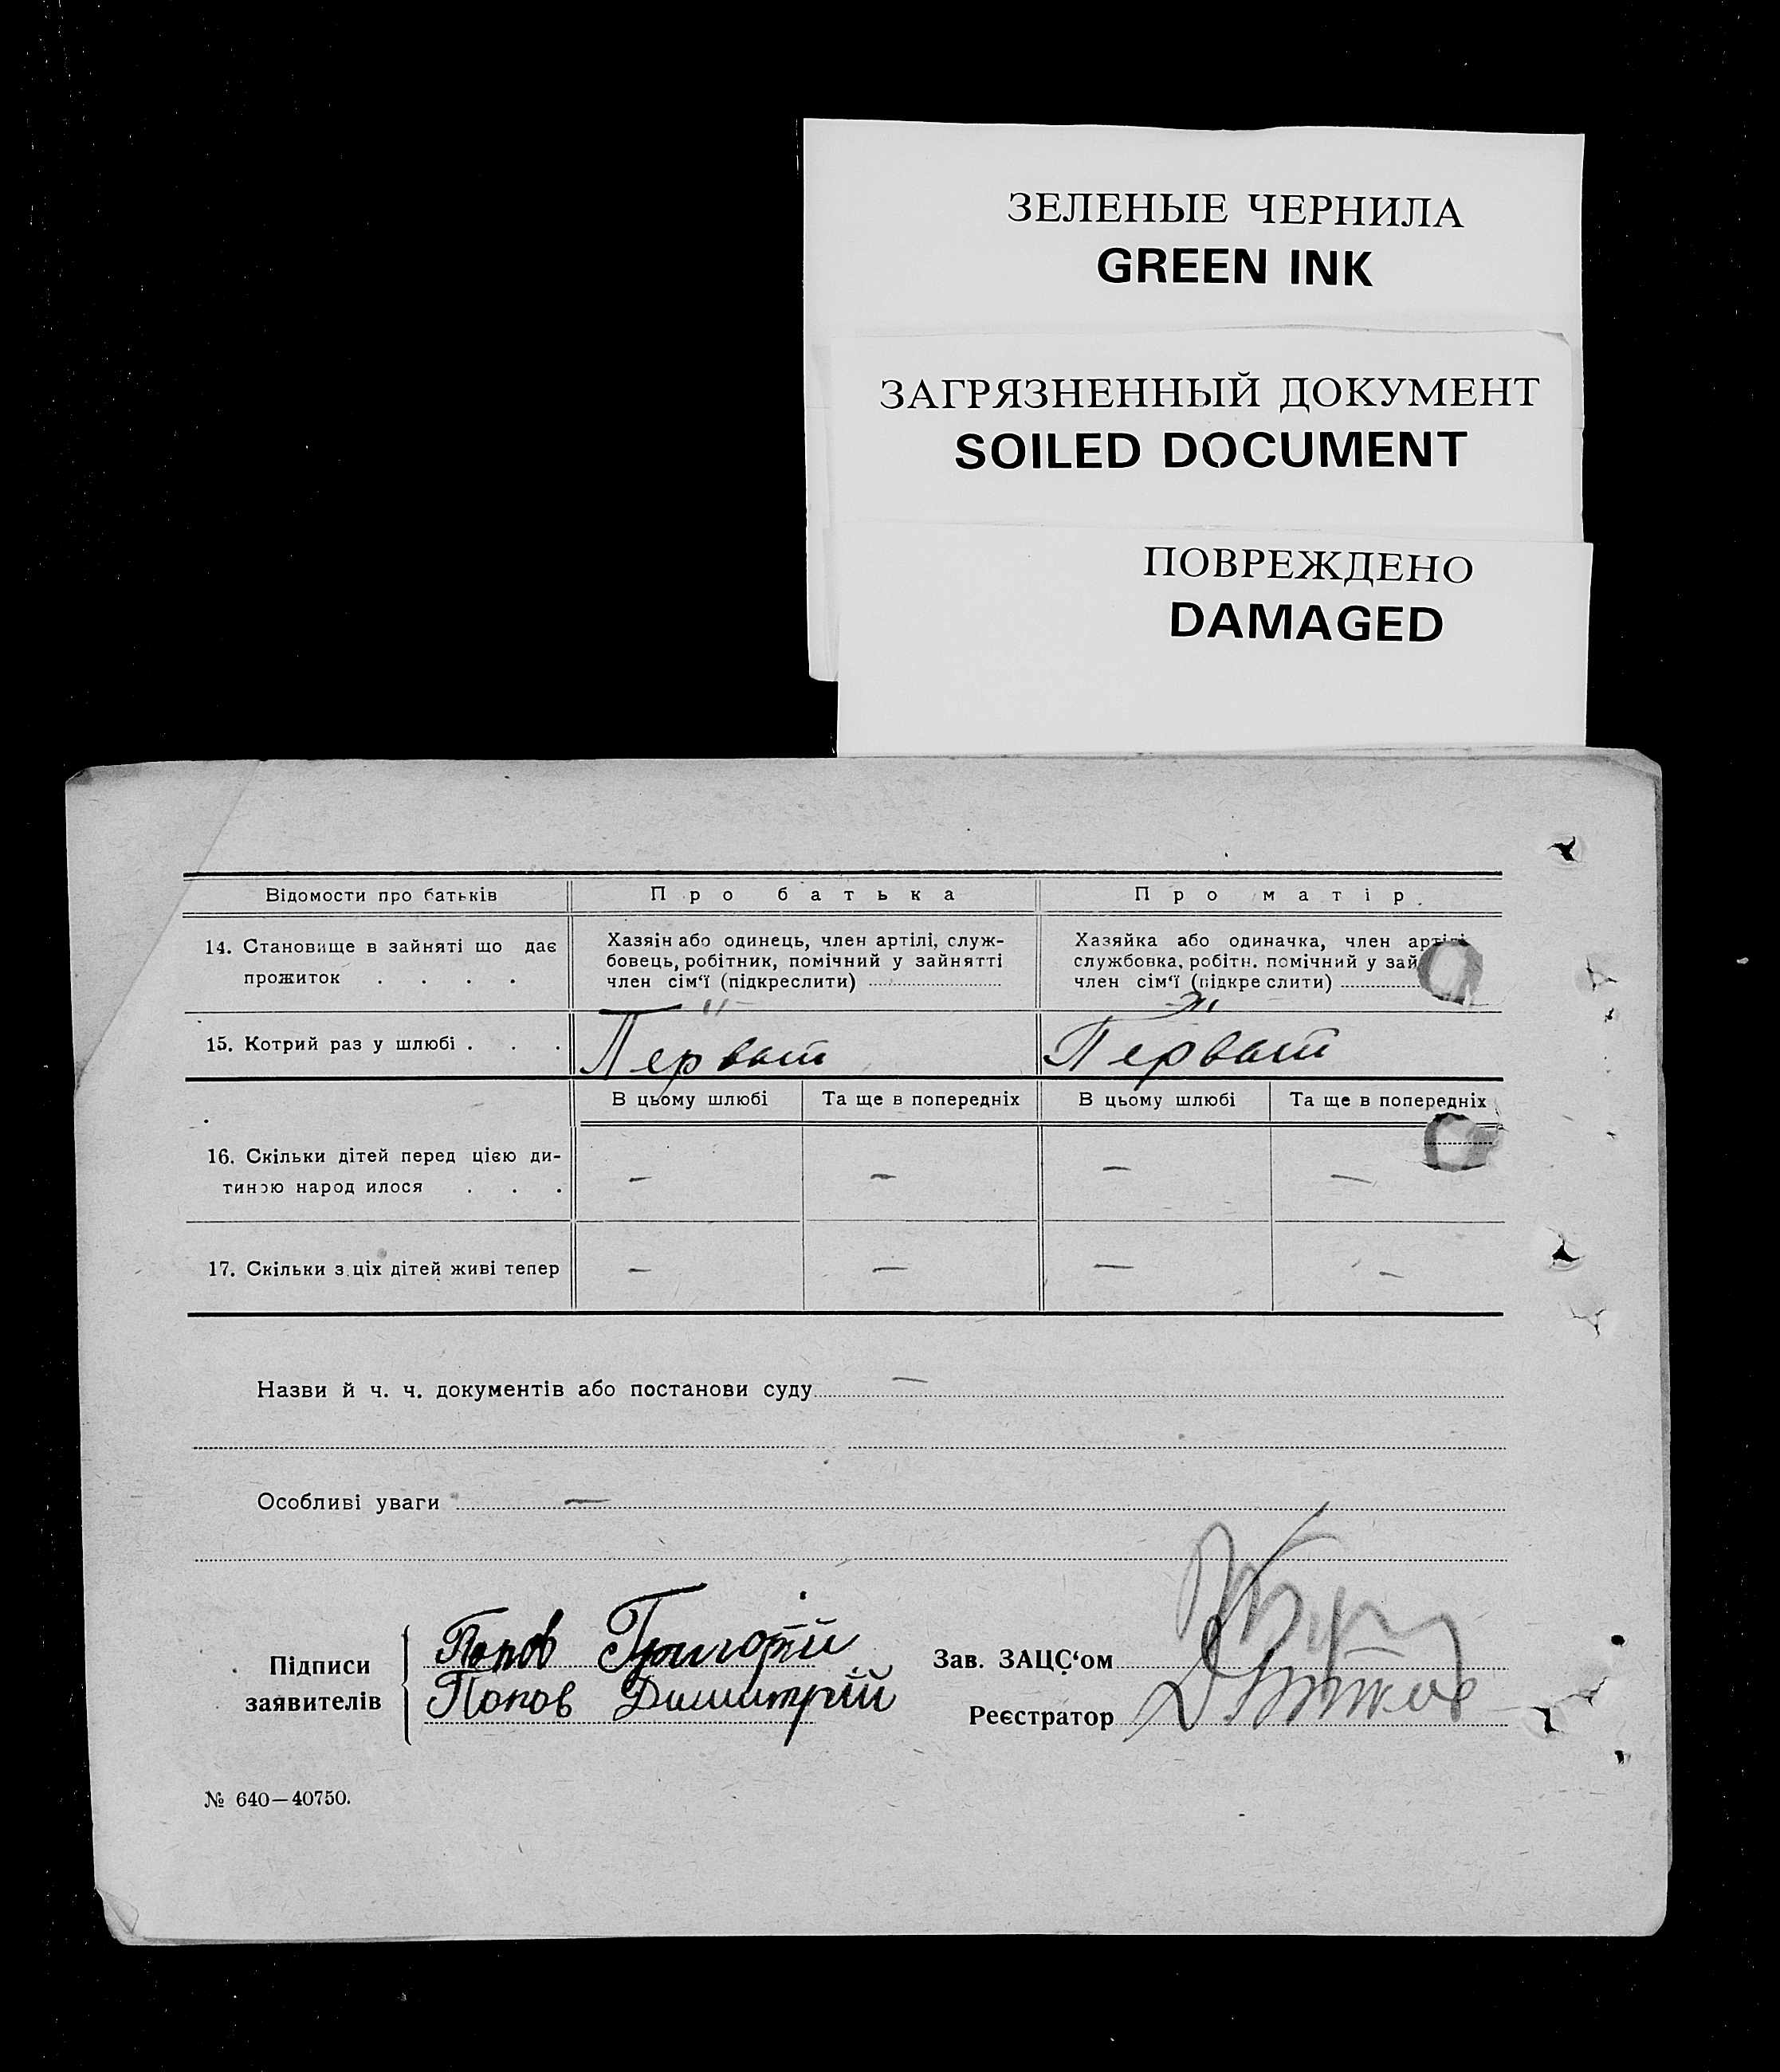 ЗЕЛЕНЫЕ ЧЕРНИЛА
GREEN INK
ЗАГРЯЗНЕННЫЙ ДОКУМЕНТ
SOILED DOCUMENT
ПОВРЕЖДЕНО
DAMAGED
Відомости про батьків
Про батька
Про матір.
14. Становище в зайняті що дає
прожиток . . . .
Хазяін або одинець, член артілі, служ-
бовець, робітник, помічний у зайнятті
член сім‘ї (підкреслити)
Хазяйка або одиначка, член артілі
службовка, робітн. помічний у зай
член сім‘ї (підкре слити)
15. Котрий раз у шлюбі . . .
Первый
Первый
В цьому шлюбі
Та ще в попередніх
В цьому шлюбі
Та ще в попередніх
16. Скільки дітей перед цією ди-
тиною народ илося . . .
— — — —
17. Скільки з ціх дітей живі тепер
— — — —
Назви й ч. ч. документів або постанови суду —
Особливі уваги —
Підписи
заявителів
Попов Григорій
Попов Димитрій
Зав. ЗАЦС‘ом
Реєстратор
№ 640—40750.